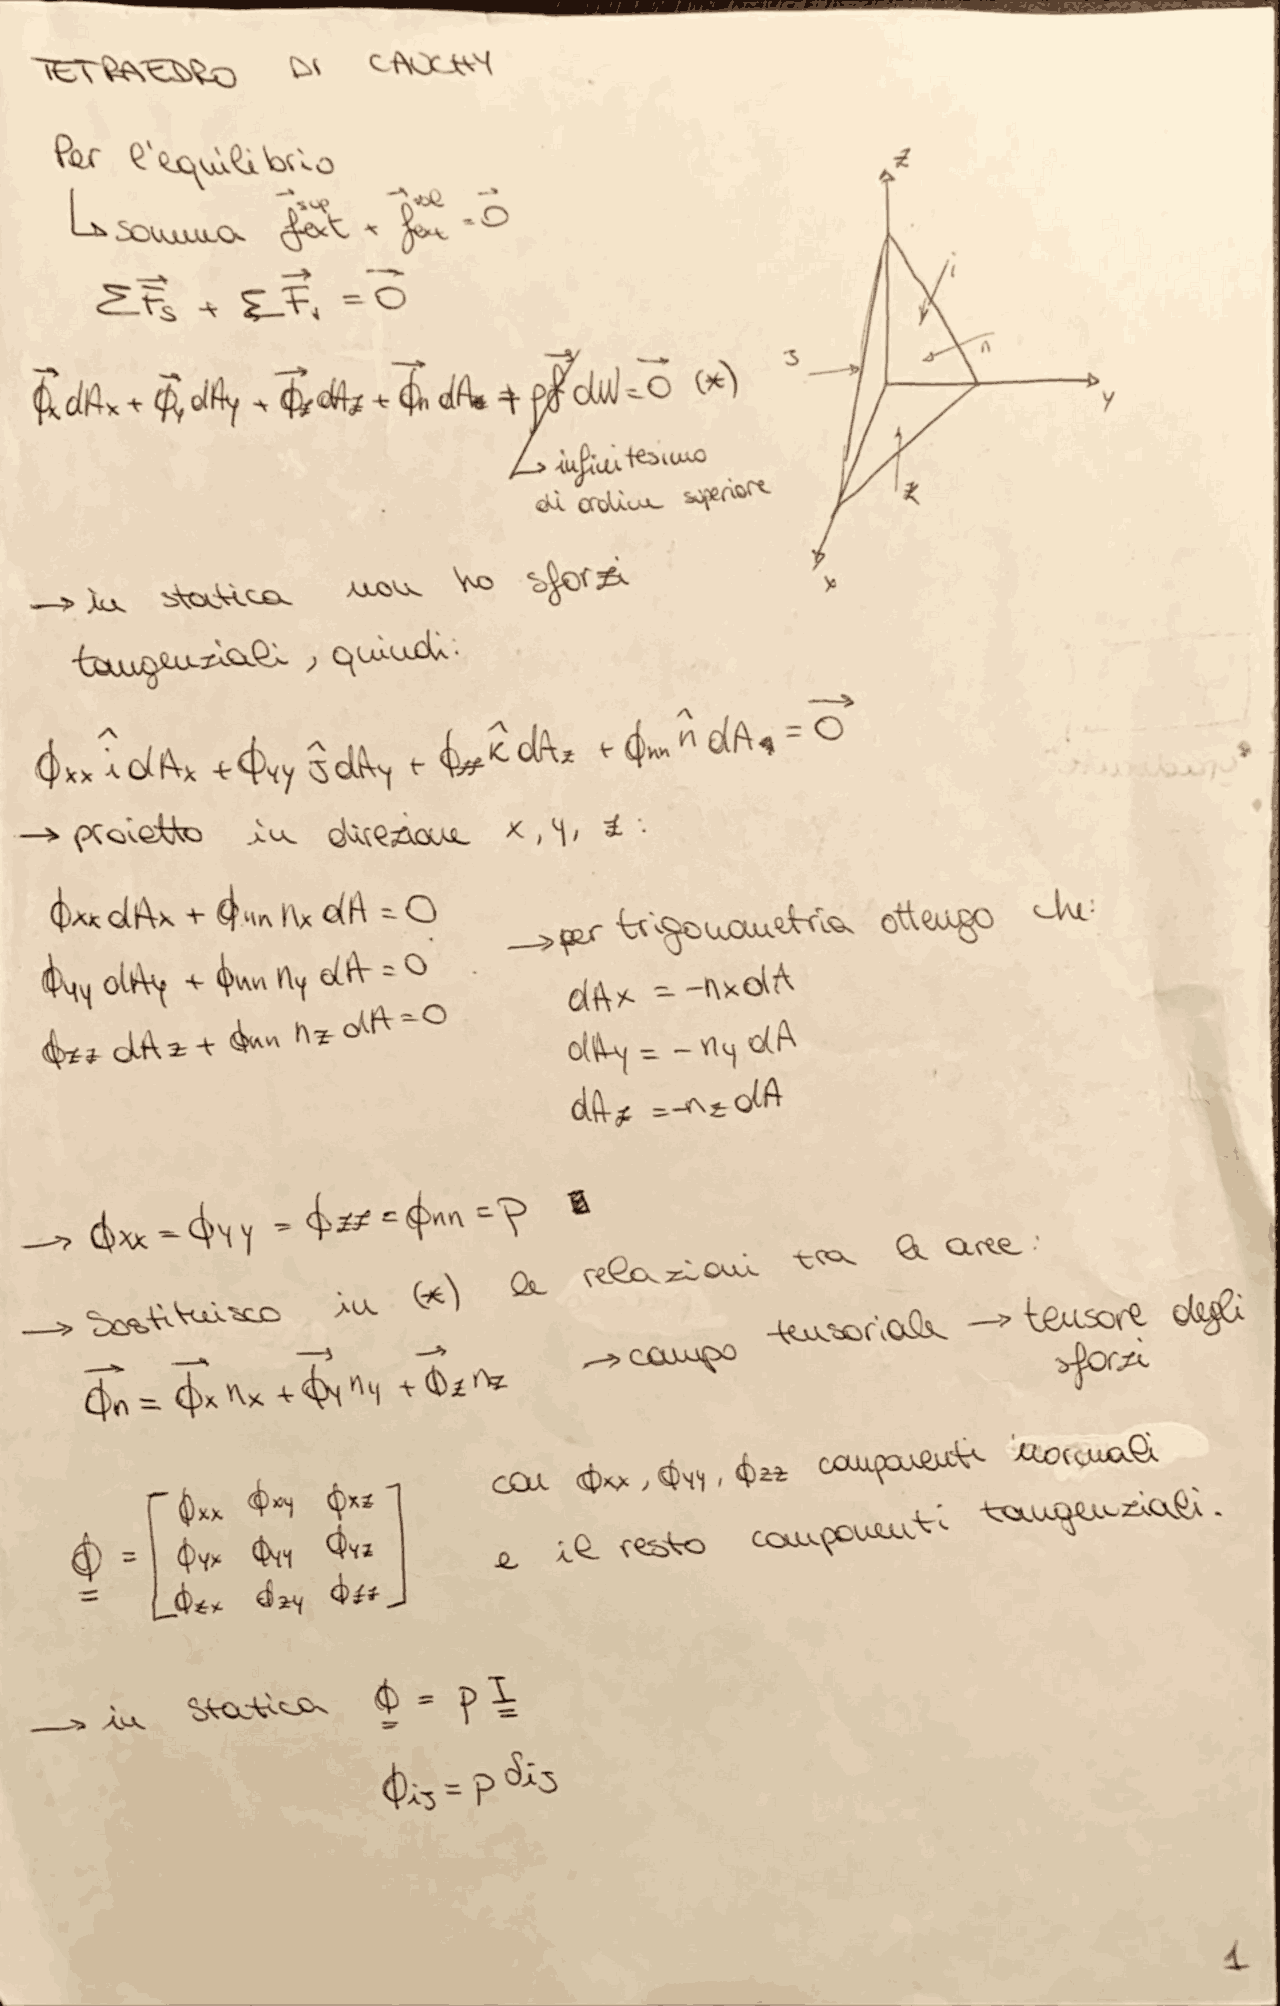 TETRAEDRO DI CAUCHY
Per l'equilibrio
↳ somma f⃗ext^sup + f⃗ext^vol = 0⃗
ΣF⃗s + ΣF⃗v = 0⃗
ϕ⃗x dAx + ϕ⃗y dAy + ϕ⃗z dAz + ϕ⃗n dA + ρf⃗ dW = 0⃗ (*)
↳ infinitesimo
di ordine superiore
z
i
n
J
y
z
x
→ in statica non ho sforzi
tangenziali, quindi:
ϕxx î dAx + ϕyy ĵ dAy + ϕzz k̂ dAz + ϕnn n̂ dA = 0⃗
→ proietto in direzione x, y, z:
ϕxx dAx + ϕnn nx dA = 0
ϕyy dAy + ϕnn ny dA = 0
ϕzz dAz + ϕnn nz dA = 0
→ per trigonometria ottengo che:
dAx = -nx dA
dAy = -ny dA
dAz = -nz dA
→ ϕxx = ϕyy = ϕzz = ϕnn = p
→ Sostituisco in (*) le relazioni tra le aree:
ϕ⃗n = ϕ⃗x nx + ϕ⃗y ny + ϕ⃗z nz → campo tensoriale → tensore degli
sforzi
ϕ = [ϕxx ϕxy ϕxz
ϕyx ϕyy ϕyz
ϕzx ϕzy ϕzz]
con ϕxx, ϕyy, ϕzz componenti normali
e il resto componenti tangenziali.
→ in statica ϕ = p I
ϕij = p δij
1